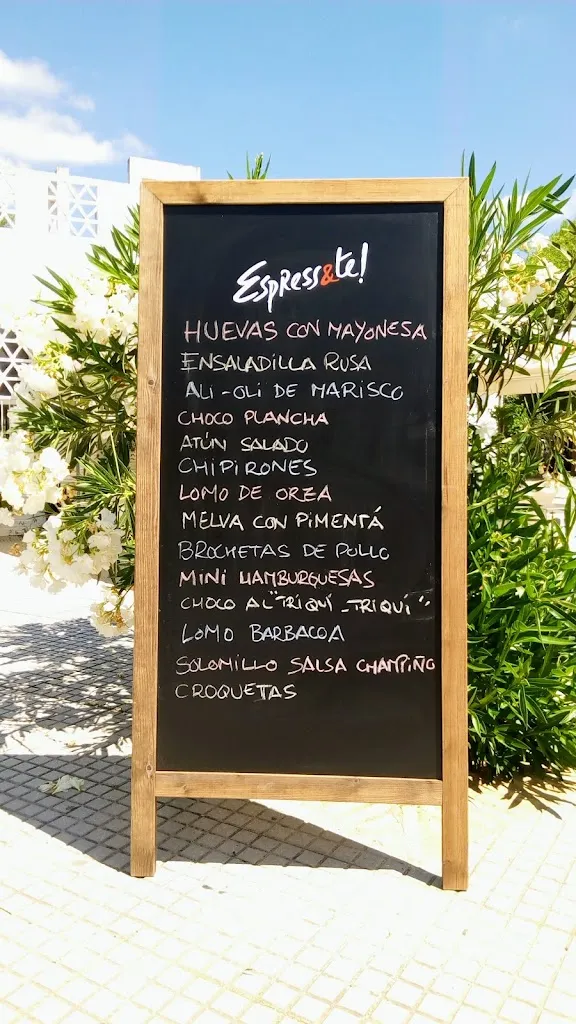 Espress&te!
HUEVAS CON MAYONESA
ENSALADILLA RUSA
ALI-OLI DE MARISCO
CHOCO PLANCHA
ATÚN SALADO
CHIPIRONES
LOMO DE ORZA
MELVA CON PIMENTÁ
BROCHETAS DE POLLO
MINI HAMBURGUESAS
CHOCO AL "TRIQUÍ-TRIQUÍ"
LOMO BARBACOA
SOLOMILLO SALSA CHAMPIÑO
CROQUETAS